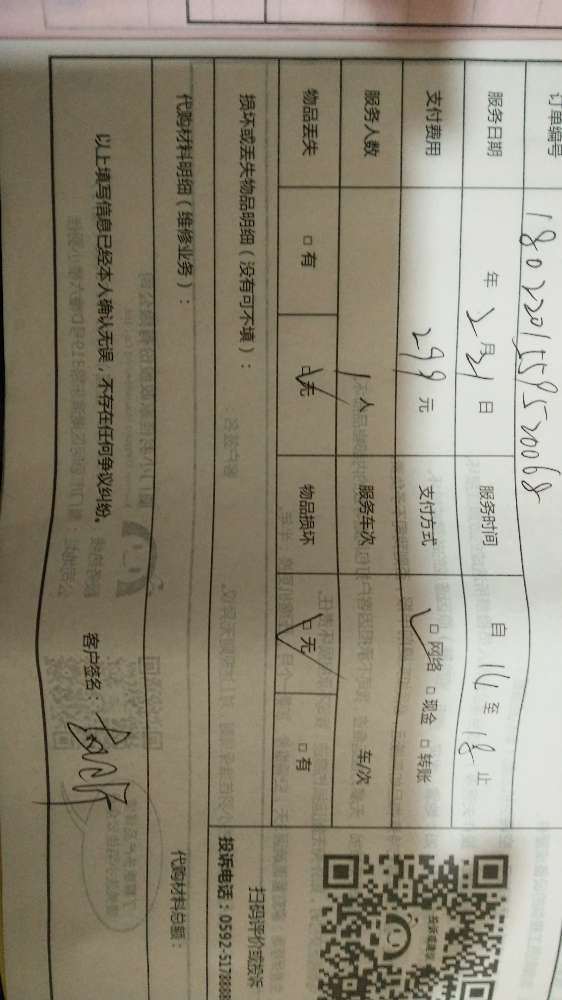 订单编号 1802201559520068
服务日期 年 2月21日 服务时间 自 14 至 18 止
支付费用 299 元 支付方式 ☑ 网络 □ 现金 □ 转账
服务人数 1 人 服务车次 车/次
物品丢失 □ 有 ☑ 无 物品损坏 ☑ 无 □ 有
损坏或丢失物品明细（没有可不填）：
扫码评价或投诉
投诉电话：0592-5178888
代购材料明细（维修业务）：
代购材料总额：
以上填写信息已经本人确认无误，不存在任何争议纠纷。
客户签名：